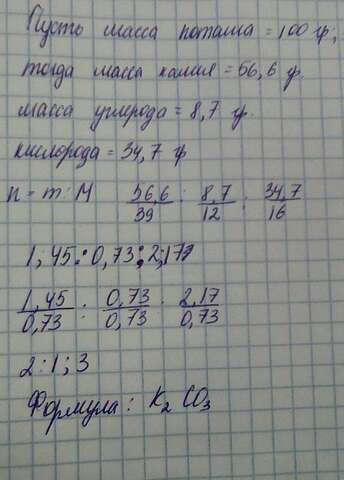 Пусть масса поташа = 100 гр,
тогда масса калия = 56,6 гр.
масса углерода = 8,7 гр.
кислорода = 34,7 гр
n = m : M 56,6/39 : 8,7/12 : 34,7/16
1,45 : 0,73 : 2,17
1,45/0,73 : 0,73/0,73 : 2,17/0,73
2 : 1 ; 3
Формула : K₂CO₃